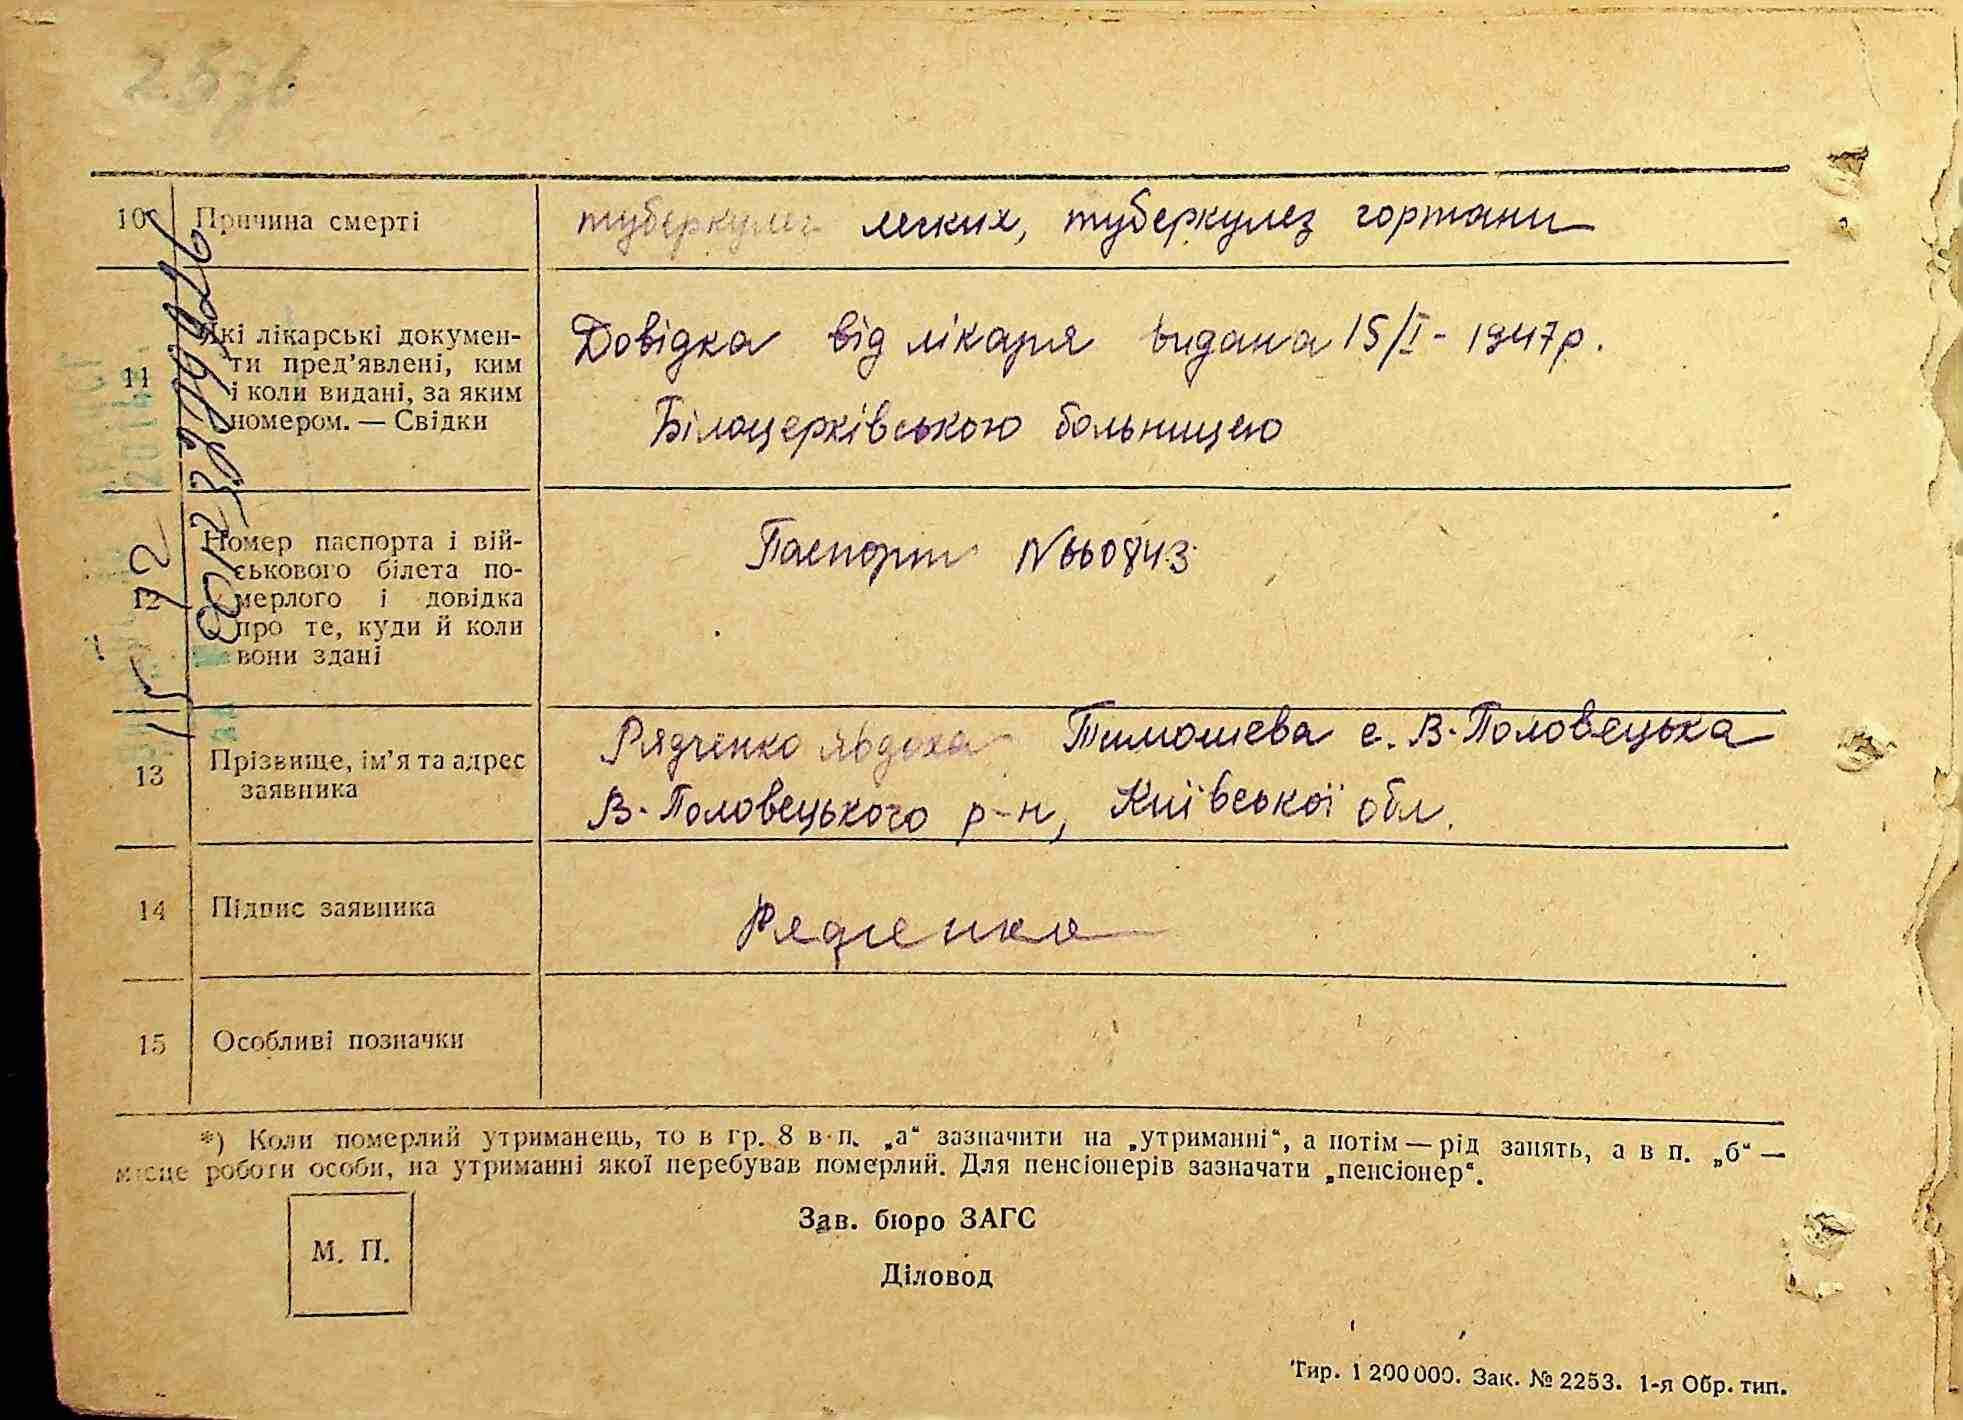 10
Причина смерті
туберкулез легких, туберкулез гортани
11
Які лікарські докумен-
ти пред'явлені, ким
і коли видані, за яким
номером. — Свідки
Довідка від лікаря видана 15/I - 1947 р.
Білоцерківського больницею
12
Номер паспорта і вій-
ськового білета по-
мерлого і довідка
про те, куди й коли
вони здані
Паспорт N 660843
13
Прізвище, ім'я та адрес
заявника
Рядченко Явдоха Тимошева с. В-Половецька
В-Половецького р-н, Київської обл.
14
Підпис заявника
Рядченко
15
Особливі позначки
*) Коли померлий утриманець, то в гр. 8 в п. „а“ зазначити на „утриманні“, а потім — рід занять, а в п. „б“ —
місце роботи особи, на утриманні якої перебував померлий. Для пенсіонерів зазначати „пенсіонер“.
М. П.
Зав. бюро ЗАГС
Діловод
Тир. 1 200 000. Зак. № 2253. 1-я Обр. тип.